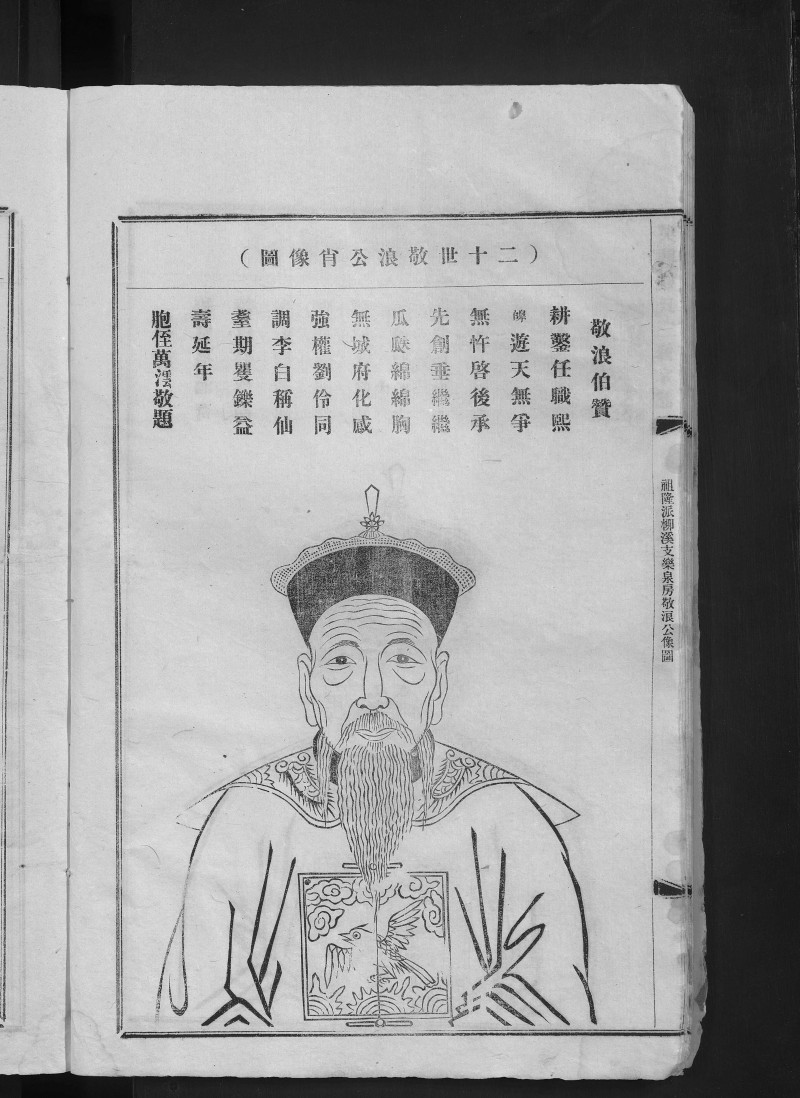 （二十世敬浪公肖像圖）
敬浪伯贊
耕鑿任職熙
皞遊天無爭
無忤啓後承
先創垂繼繼
瓜瓞綿綿胸
無城府化感
強權劉伶同
調李白稱仙
耋期矍鑠益
壽延年
胞侄萬澐敬題
祖隆派柳溪支樂泉房敬浪公像圖